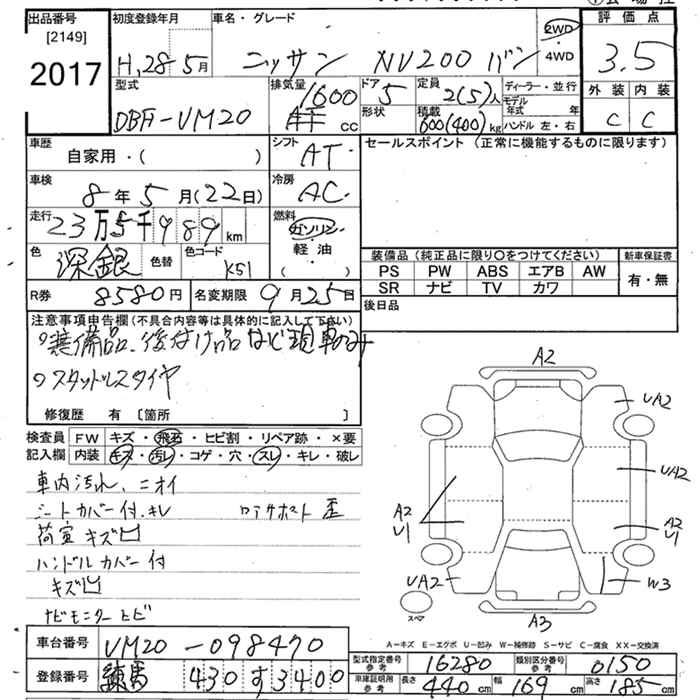 出品番号
[2149]
2017
初度登録年月
H,28年5月
車名・グレード
ニッサン NV200 バン
2WD
・4WD
評価点
3.5
外装 内装
C C
型式
DBA-VM20
排気量
1600
cc
ドア
5
形状
定員
2(5)人
積載
600(400)kg
ディーラー・並行
モデル年式 年
ハンドル 左・右
車歴
自家用・( )
シフト
AT
車検
8年5月(22日)
冷房
AC
走行
23万5千989km
燃料
ガソリン
軽油
( )
色
深銀
色替
色コード
K51
R券
8580円
名変期限
9月25日
セールスポイント (正常に機能するものに限ります)
装備品 (純正品に限り〇をつけてください)
PS PW ABS エアB AW
SR ナビ TV カワ
新車保証書
有・無
後日品
注意事項申告欄(不具合内容等は具体的に記入して下さい)
○装備品、後付け品など現車のみ
○スタッドレスタイヤ
修復歴 有 〔箇所 〕
検査員 FW キズ・飛石・ヒビ割・リペア跡・×要
記入欄 内装 キズ・汚レ・コゲ・穴・スレ・キレ・破レ
車内汚れ、ニオイ
シートカバー付、キレ
荷室キズ凹
ハンドルカバー付
キズ凹
ナビモニタートビ
A2
UA2
UA2
A2
U1
A2
U1
UA2
W3
スペア
A3
A-キズ E-エクボ U-凹み W-補修跡 S-サビ C-腐食 XX-交換済
車台番号
VM20-098470
登録番号
練馬 430 す 3400
型式指定番号
参考
16280
類別区分番号
参考
0150
車庫証明用
参考
長さ 440cm 幅 169cm 高さ 185cm